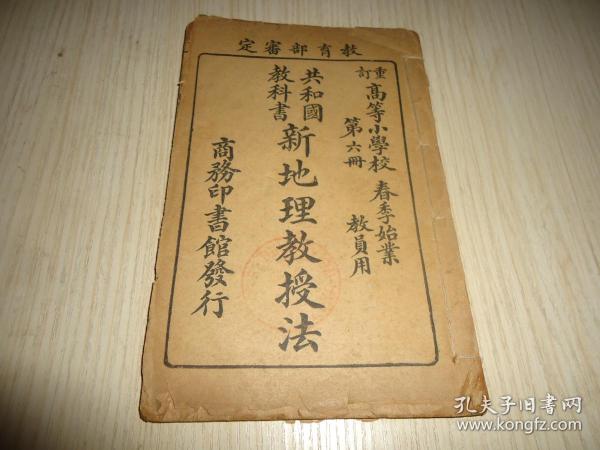 教育部審定
重訂 高等小學校 春季始業
第六冊 教員用
共和國
教科書
新地理教授法
商務印書館發行
孔夫子旧書网
www.kongfz.com